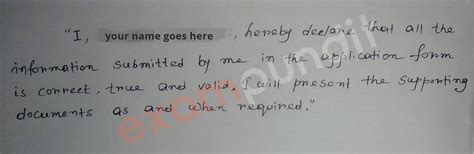 "I, your name goes here, hereby declare that all the
information submitted by me in the application form
is correct, true and valid. I will present the supporting
documents as and when required."
exampundit